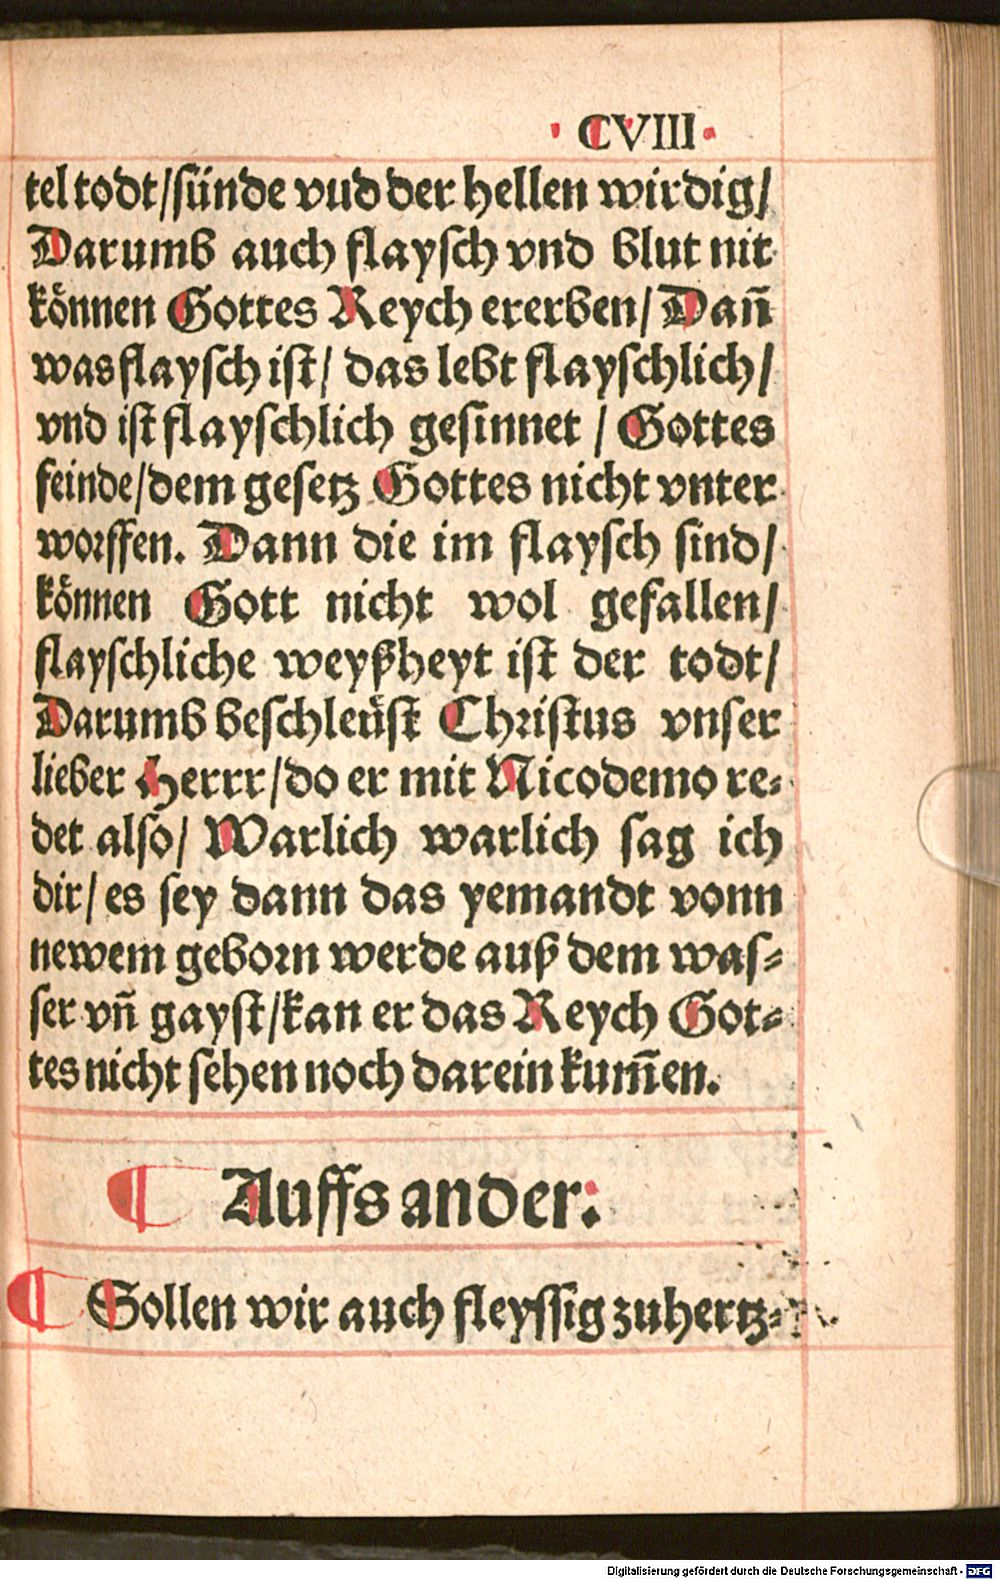 · CVIII ·
tel todt/sünde vud der hellen wirdig/
Darumb auch flaysch vnd blut nit
können Gottes Reych ererben/ Dañ
was flaysch ist/ das lebt flayschlich/
vnd ist flayschlich gesinnet / Gottes
feinde/dem gesetz Gottes nicht vnter
worffen. Dann die im flaysch sind/
können Gott nicht wol gefallen/
flayschliche weyßheyt ist der todt/
Darumb beschleüst Christus vnser
lieber Herrr/do er mit Nicodemo re⸗
det also/ Warlich warlich sag ich
dir/ es sey dann das yemandt vonn
newem geborn werde auß dem was⸗
ser vñ gayst/kan er das Reych Got⸗
tes nicht sehen noch darein kum̃en.
¶ Auffs ander:
¶ Sollen wir auch fleyssig zuhertz⸗
Digitalisierung gefördert durch die Deutsche Forschungsgemeinschaft - DFG